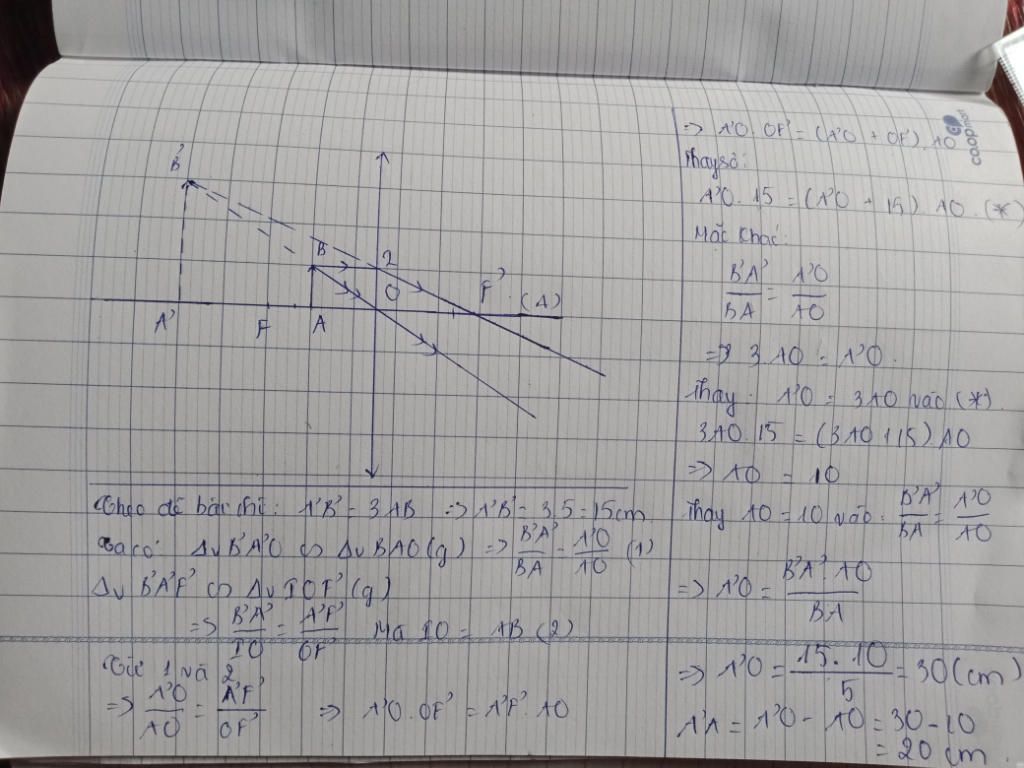 B'
B
I
O
F'
(Δ)
A'
F
A
Theo đề bài cho: A'B' = 3AB => A'B' = 3.5 = 15cm
Ta có: Δv B'A'O ∽ Δv BAO (g) => B'A'/BA = A'O/AO (1)
Δv B'A'F' ∽ Δv IOF' (g)
=> B'A'/IO = A'F'/OF' Mà IO = AB (2)
Từ 1 và 2
=> A'O/AO = A'F'/OF' => A'O.OF' = A'F'.AO
=> A'O.OF' = (A'O + OF').AO
Thay số:
A'O.15 = (A'O + 15).AO.(*)
Mặt khác:
B'A'/BA = A'O/AO
=> 3AO = A'O.
Thay: A'O = 3AO vào (*).
3AO.15 = (3AO+15)AO
=> AO = 10
Thay AO = 10 vào: B'A'/BA = A'O/AO
=> A'O = B'A'.AO/BA
=> A'O = 15.10/5 = 30(cm)
A'A = A'O - AO = 30 - 10
= 20 cm.
co.opmart